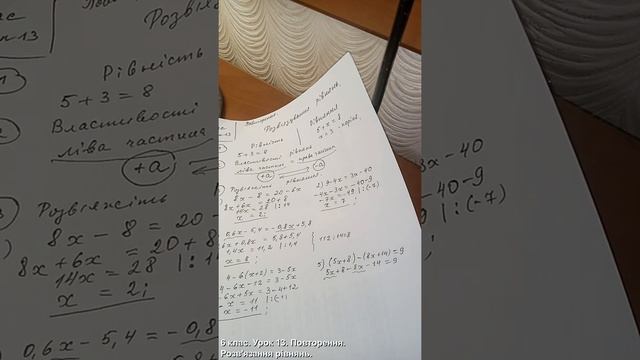 Повторення.
Розв'язування рівнянь.
Рівність
5+3=8
Рівняння
5+x=8
x=3 - корінь.
Властивості рівнянь
ліва частина = права частина
+a
-a
Розв'яжіть рівняння:
8x-8=20-6x
8x+6x=20+8
14x=28 |:14
x=2;
2) 9-4x=3x-40
-4x-3x=-40-9
-7x=-49 |:(-7)
x=7;
0,6x-5,4=-0,8x+5,8
6x+0,8x=5,8+5,4
1,4x=11,2 |:1,4
x=8;
112:14=8
4-6(x+2)=3-5x
4-6x-12=3-5x
-6x+5x=3-4+12
-x=11 |:(-1)
x=-11;
5) (5x+8)-(8x+14)=9
5x+8-8x-14=9
6 клас. Урок 13. Повторення.
Розв'язання рівнянь.